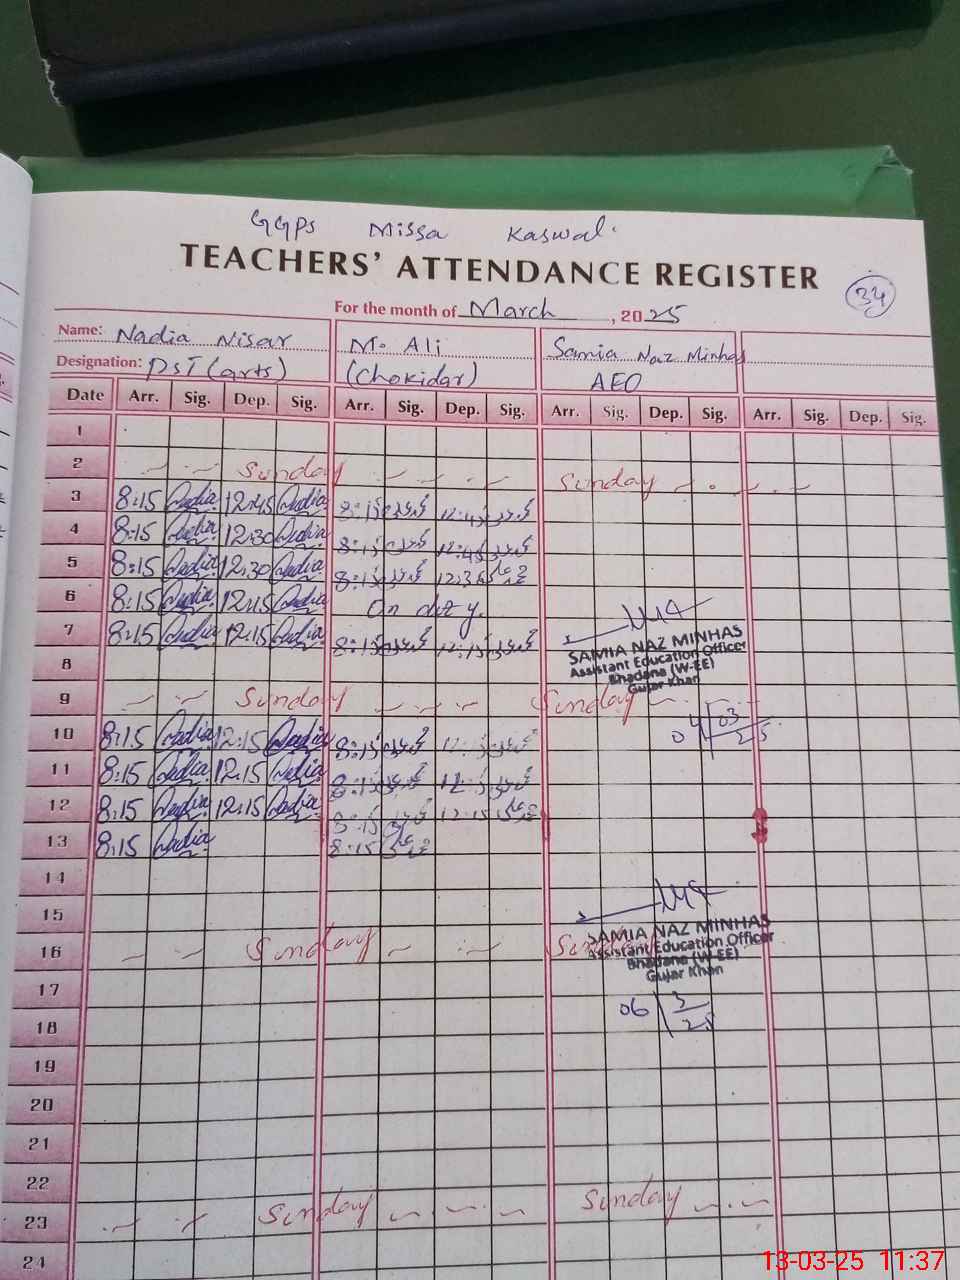 GGPS Missa Kaswal
TEACHERS' ATTENDANCE REGISTER
34
For the month of March, 2025
Name: Nadia Nisar M. Ali Samia Naz Minhas
Designation: PST (arts) (Chokidar) AEO
Date Arr. Sig. Dep. Sig. Arr. Sig. Dep. Sig. Arr. Sig. Dep. Sig. Arr. Sig. Dep. Sig.
1
2 Sunday Sunday
3 8:15 Nadia 12:45 Nadia 8:15 12:45
4 8:15 Nadia 12:30 Nadia 8:15 12:45
5 8:15 Nadia 12:30 Nadia 8:15
6 8:15 Nadia 12:15 Nadia On duty.
7 8:15 Nadia 12:15 Nadia 8:15 12:15
SAMIA NAZ MINHAS
Assistant Education Officer
Bhadana (W-EE)
Gujar Khan
8
9 Sunday Sunday
04/03/25
10 8:15 Nadia 12:15 Nadia 8:15 12:15
11 8:15 Nadia 12:15 Nadia 8:15
12 8:15 Nadia 12:15 Nadia 8:15 12:15
13 8:15 Nadia 8:15
14
15
16 Sunday Sunday
SAMIA NAZ MINHAS
Assistant Education Officer
Bhadana (W-EE)
Gujar Khan
17
06/3/25
18
19
20
21
22
23 Sunday Sunday
24
13-03-25 11:37